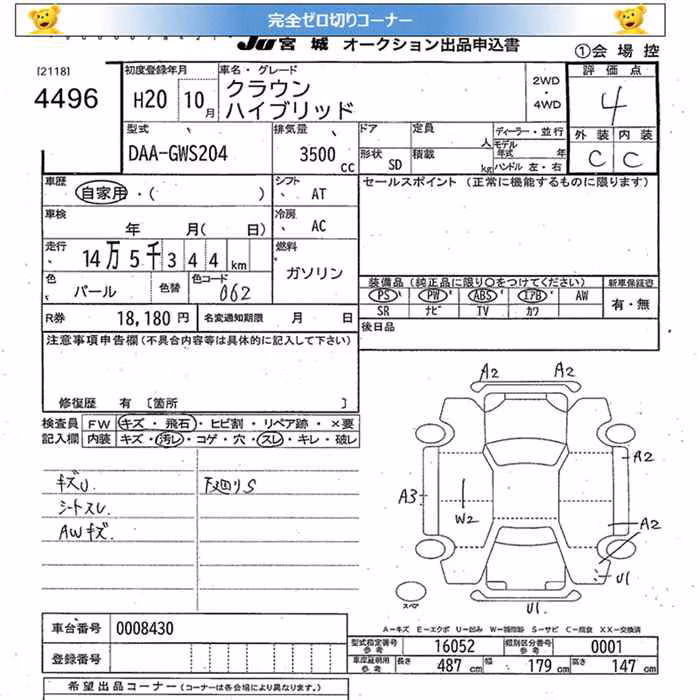 完全ゼロ切りコーナー
JU 宮城 オークション出品申込書
①会場控
[2118]
4496
初度登録年月 車名・グレード 2WD・4WD 評価点
H20 10月 クラウン ハイブリッド 4
型式 排気量 ドア 定員 人 ディーラー・並行 外装 内装
DAA-GWS204 3500cc 形状 SD 積載 kg モデル年式 年 ハンドル 左・右 C C
車歴 自家用・( ) シフト AT セールスポイント (正常に機能するものに限ります)
車検 年 月( 日) 冷房 AC
走行 14万5千344km 燃料 ガソリン
色 パール 色替 色コード 062
装備品 (純正品に限り○をつけてください) 新車保証書
PS PW ABS エアB AW 有・無
SR ナビ TV カワ
R券 18,180円 名変通知期限 月 日 後日品
注意事項申告欄 (不具合内容等は具体的に記入して下さい)
修復歴 有 [箇所 ]
検査員 FW キズ・飛石・ヒビ割・リペア跡・×要
記入欄 内装 キズ・汚レ・コゲ・穴・スレ・キレ・破レ
キズU 下廻りS
シートスレ
AWキズ
A2 A2
A2
A3 W2
A2
U1
スペア U1
A=キズ E=エクボ U=凹み W=補修跡 S=サビ C=腐食 XX=交換済
車台番号 0008430
型式指定番号 参考 16052 類別区分番号 参考 0001
登録番号
車庫証明用 参考 長さ 487cm 幅 179cm 高さ 147cm
希望出品コーナー (コーナーは各会場により異なります。)